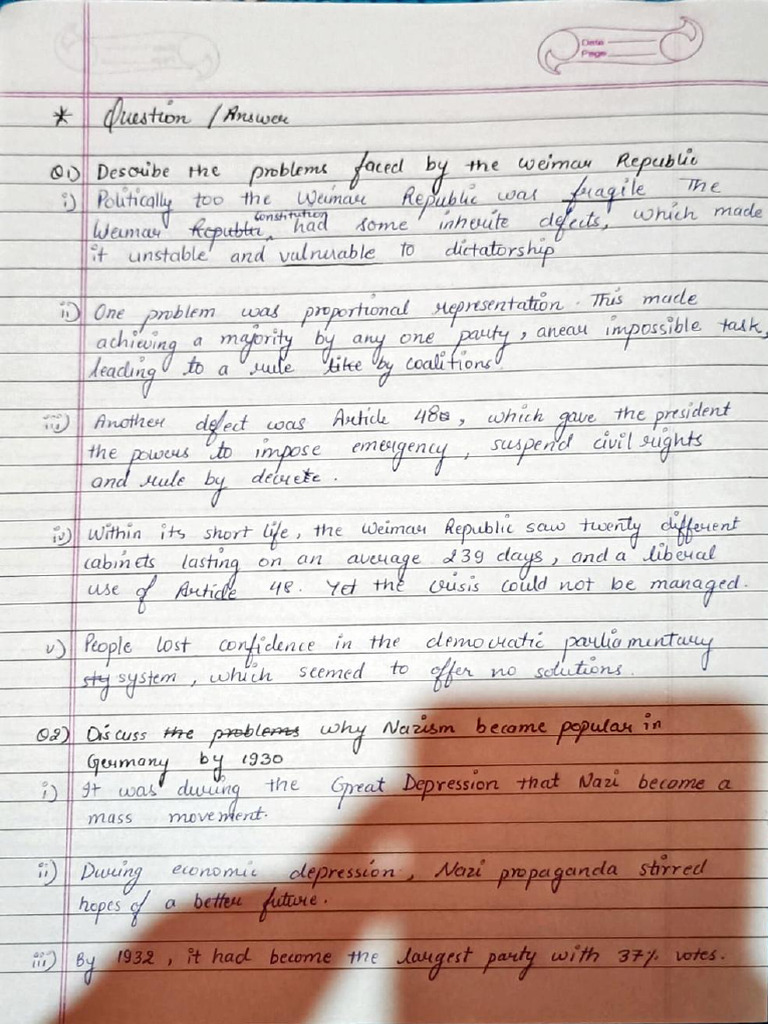 Date
Page
* Question / Answer
Q1) Describe the problems faced by the weimar Republic
i) Politically too the Weimar Republic was fragile The
Weimar Republic constitution had some inherite defects, which made
it unstable and vulnurable to dictatorship
ii) One problem was proportional representation. This made
achieving a majority by any one party, anear impossible task,
leading to a rule like by coalitions.
iii) Another defect was Article 48, which gave the president
the powers to impose emergency, suspend civil rights
and rule by decrete.
iv) Within its short life, the Weimar Republic saw twenty different
cabinets lasting on an average 239 days, and a liberal
use of Article 48. Yet the crisis could not be managed.
v) People lost confidence in the democratic parliamentary
sty system, which seemed to offer no solutions.
Q2) Discuss the problems why Nazism become popular in
Germany by 1930
i) It was during the Great Depression that Nazi become a
mass movement.
ii) During economic depression, Nazi propaganda stirred
hopes of a better future.
iii) By 1932, it had become the largest party with 37% votes.